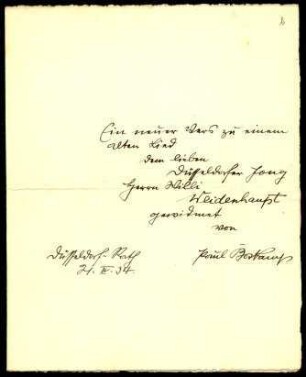 Ein neuer Vers zu einem
alten Lied
dem lieben
Düsseldorfer Jong
Herrn Willi
Weidenhaupt
gewidmet
von
Düsseldorf-Rath
Paul Boskamp